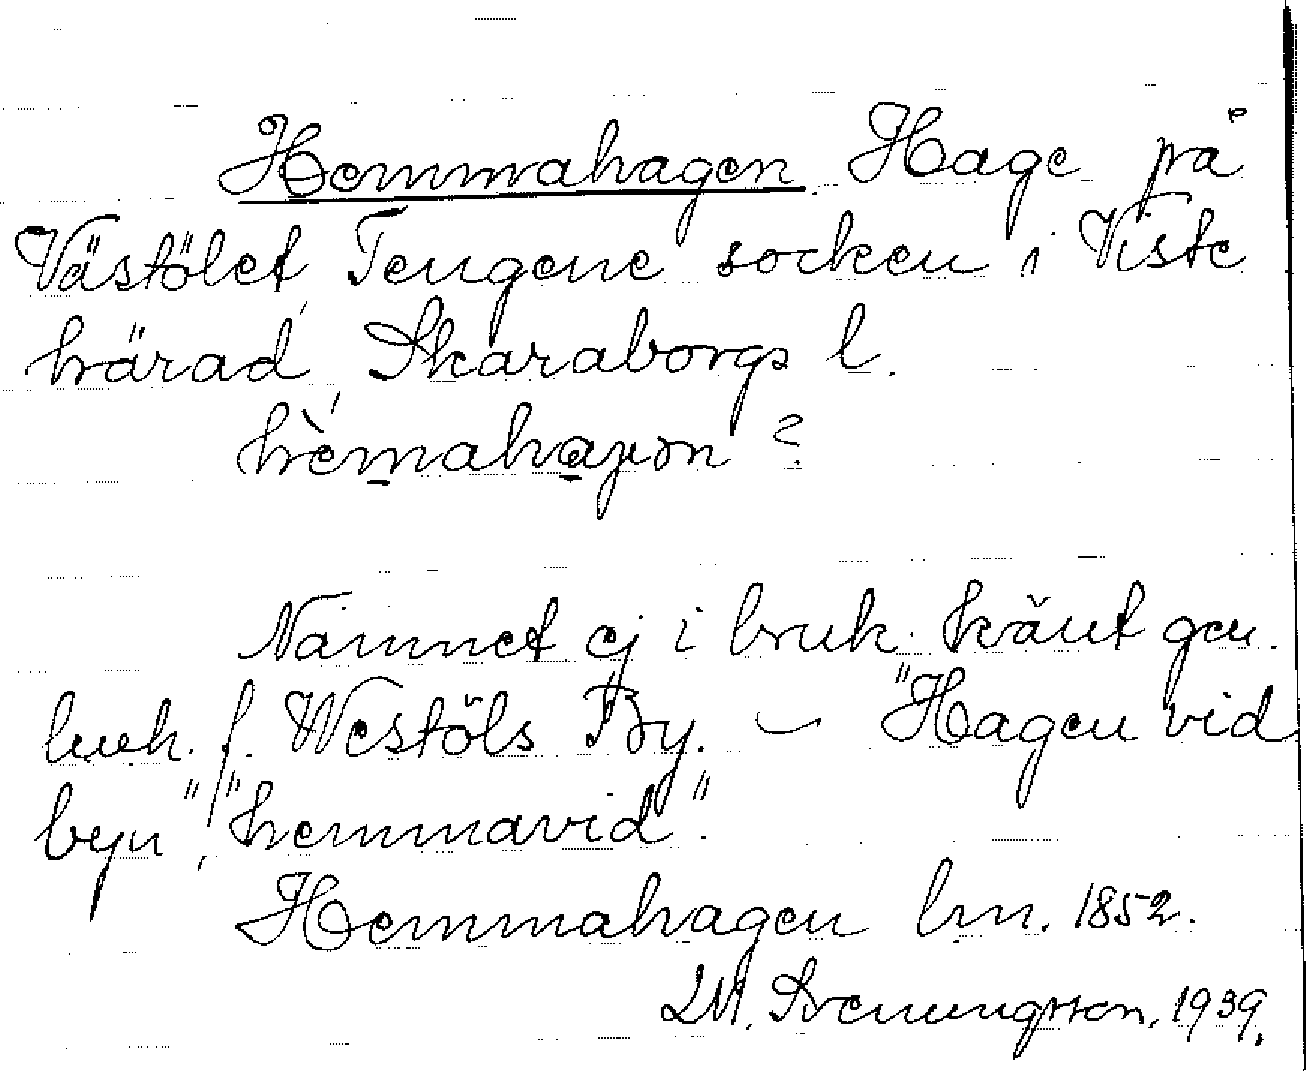 Hemmahagen Hage på
Västölet, Tengene socken i Viste
härad, Skaraborgs l.
Namnet ej i bruk. känt gen.
luvh. f. Westöls By. – "Hagen vid
byn", "hemmavid".
Hemmahagen lm. 1852.
LM. Svenungsson, 1939.